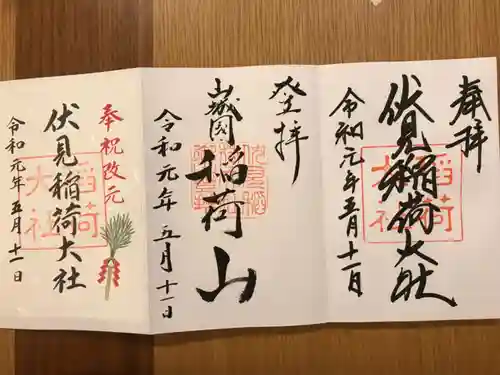 奉拝
伏見稲荷大社
令和元年五月十一日
稲荷
大社
登拝
山城国
稲荷山
令和元年五月十一日
奉祝改元
伏見稲荷大社
稲荷
大社
令和元年五月十一日